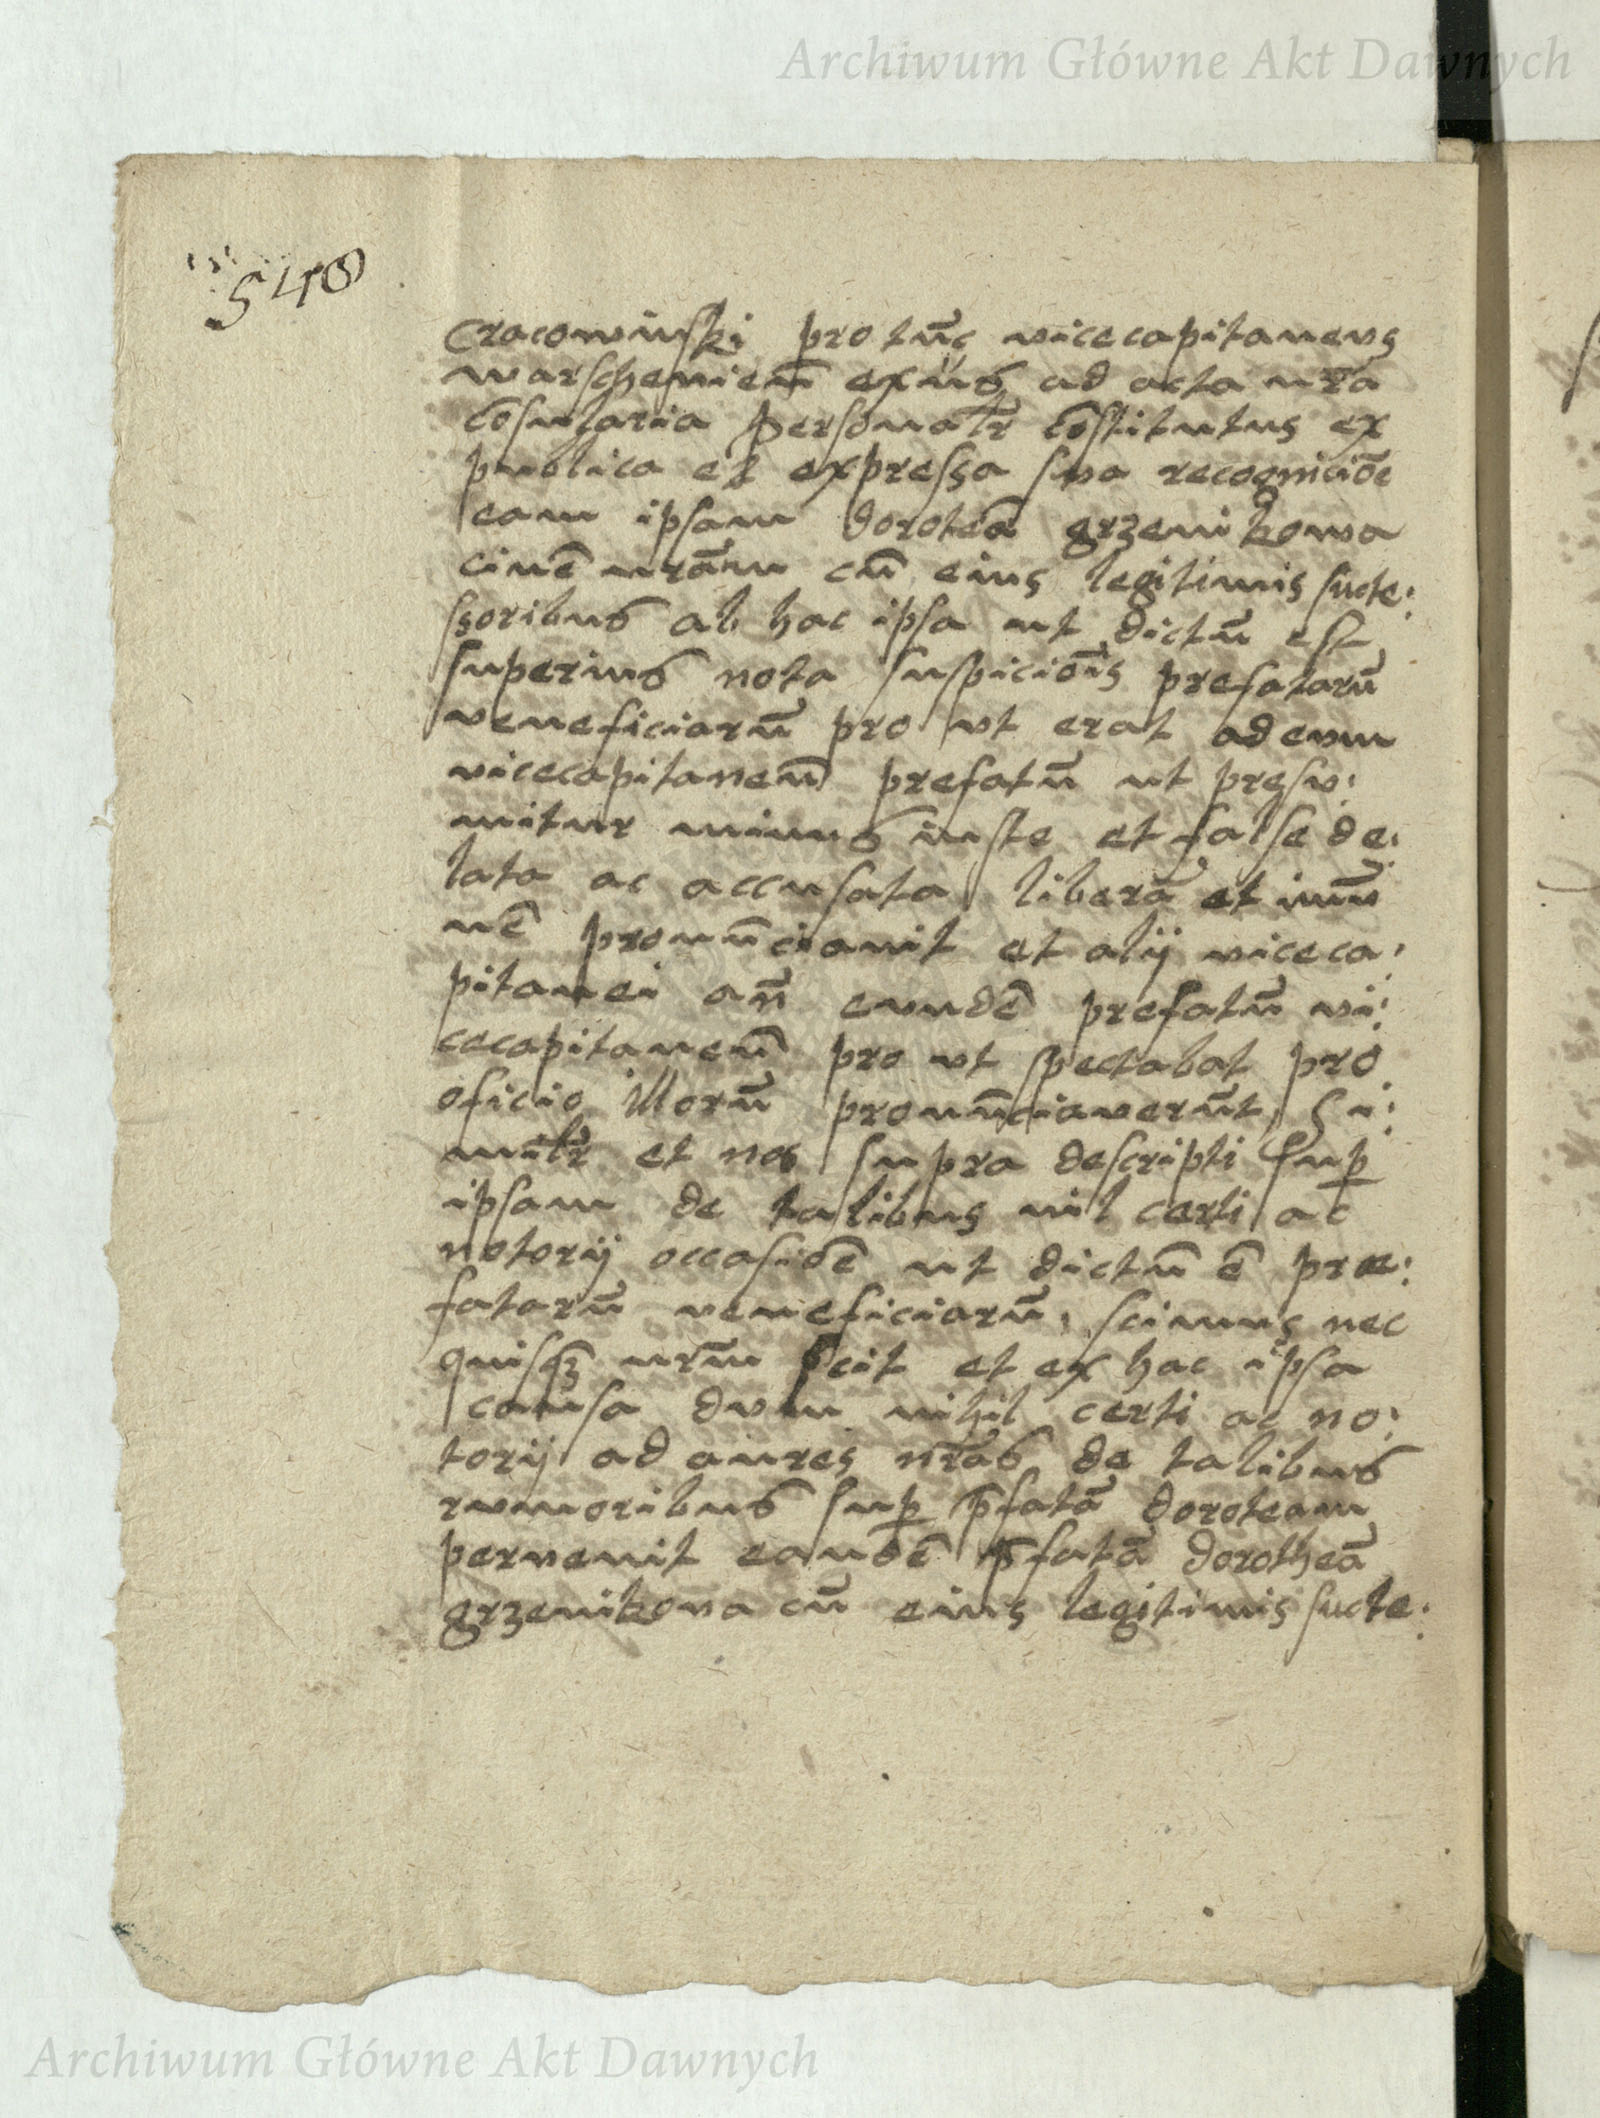 Archiwum Główne Akt Dawnych
540
Cracowinski pro tūc vicecapitaneus
warscheniēn exn̄s ad acta nr̄a
cōsularia personalr̄ cōstitutus ex
publica et expressa sua recogniciōe
eam ipsam doroteā grzenikowa
civē nrām cū eius legitimis succe:
ssoribus ab hac ipsa ut dictū est
superius nota suspiciōis prefatarū
veneficiarū pro ut erat ad eum
vicecapitaneū prefatū ut presu:
mitur minus iuste et false de:
lata ac accusata liberā et imū
nē pronūciavit et alij viceca:
pitanei an̄ eundē prefatū vi:
cecapitaneū pro ut spectabat pro
oficio illorū pronūciaverūt, Si:
milr̄ et nos supra descripti sup̱
ipsam de talibus nil certi ac
notorij occasiōe ut dictū ē prae:
fatarū veneficiarū, scimus nec
quisq̄ nrūm scit et ex hac ipsa
causa dum nihil certi ac no:
torij ad aures nr̄as de talibus
rumoribus sup̱ p̄fatā doroteam
pervenit eandē p̄fatā dorotheā
grzenikova cū eius legitimis succe:
Archiwum Główne Akt Dawnych